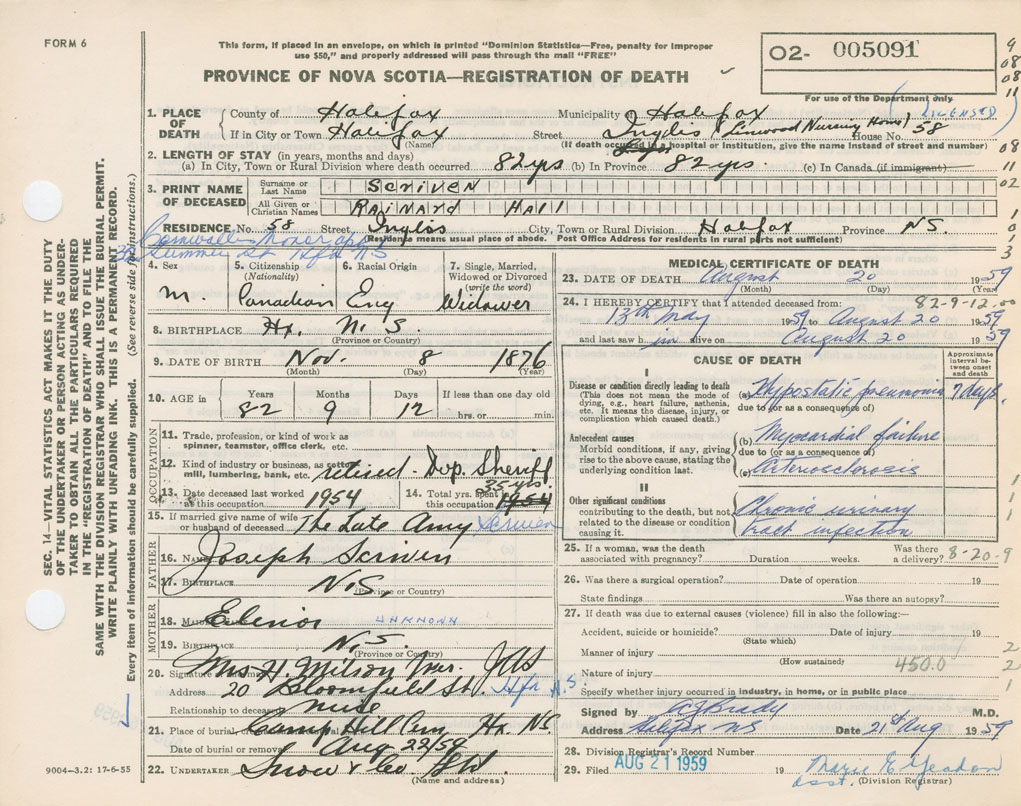 FORM 6
This form, if placed in an envelope, on which is printed "Dominion Statistics—Free, penalty for improper
use $50," and properly addressed will pass through the mail "FREE"
PROVINCE OF NOVA SCOTIA—REGISTRATION OF DEATH
02- 005091
For use of the Department only
LICENSED
9
08
08
11
08
11
02
SEC. 14—VITAL STATISTICS ACT MAKES IT THE DUTY
OF THE UNDERTAKER OR PERSON ACTING AS UNDER-
TAKER TO OBTAIN ALL THE PARTICULARS REQUIRED
IN THE "REGISTRATION OF DEATH" AND TO FILE THE
SAME WITH THE DIVISION REGISTRAR WHO SHALL ISSUE THE BURIAL PERMIT.
WRITE PLAINLY WITH UNFADING INK. THIS IS A PERMANENT RECORD.
Every item of information should be carefully supplied. (See reverse side for instructions.)
1. PLACE OF DEATH
County of Halifax Municipality Halifax
If in City or Town Halifax Street Inglis (Linwood Nursing Home) House No. 58
(Name) (If death occurred in a hospital or institution, give the name instead of street and number)
2. LENGTH OF STAY (in years, months and days)
(a) In City, Town or Rural Division where death occurred 82 yrs (b) In Province 82 yrs. (c) In Canada (if immigrant)
3. PRINT NAME OF DECEASED
Surname or Last Name Scriven
All Given or Christian Names Rainard Hall
RESIDENCE No. 58 Street Inglis City, Town or Rural Division Halifax Province N.S.
(Residence means usual place of abode. Post Office Address for residents in rural parts not sufficient)
Summer St Hfx N S
4. Sex M.
5. Citizenship (Nationality) Canadian
6. Racial Origin Eng
7. Single, Married, Widowed or Divorced (write the word) Widower
8. BIRTHPLACE Hx. N. S.
(Province or Country)
9. DATE OF BIRTH Nov. 8 1876
(Month) (Day) (Year)
10. AGE in Years Months Days If less than one day old
82 9 12 hrs. or min.
OCCUPATION
11. Trade, profession, or kind of work as
spinner, teamster, office clerk, etc.
12. Kind of industry or business, as cotton
mill, lumbering, bank, etc. retired - Dep. Sheriff
13. Date deceased last worked
at this occupation 1954
14. Total yrs. spent in
this occupation 35 yrs. 1954
15. If married give name of wife
or husband of deceased The Late Amy Scriven
FATHER
16. Name Joseph Scriven
17. Birthplace N.S
(Province or Country)
MOTHER
18. Elenor UNKNOWN
19. Birthplace N.S.
(Province or Country)
20. Signature Mrs H. Milson
Address 20 Bloomfield St. Hfx N.S.
Relationship to deceased Nurse
21. Place of burial, Camp Hill Cem Hx. N.S.
Date of burial or removal Aug 22/59
22. UNDERTAKER Snow & Co. Ltd
(Name and address)
9004-3.2: 17-6-55
MEDICAL CERTIFICATE OF DEATH
23. DATE OF DEATH August 20 1959
(Month) (Day) (Year)
82-9-12.00
24. I HEREBY CERTIFY that I attended deceased from:
13th May 1959 to August 20 1959
and last saw him alive on August 20 1959
CAUSE OF DEATH
Approximate interval between onset and death
I
Disease or condition directly leading to death
(This does not mean the mode of
dying, e.g., heart failure, asthenia,
etc. It means the disease, injury, or
complication which caused death.)
(a) Hypostatic pneumonia 7 days.
due to (or as a consequence of)
Antecedent causes
Morbid conditions, if any, giving
rise to the above cause, stating the
underlying condition last.
(b) Myocardial failure
due to (or as a consequence of)
(c) Arteriosclerosis
II
Other significant conditions
contributing to the death, but not
related to the disease or condition
causing it.
Chronic urinary
tract infection
25. If a woman, was the death
associated with pregnancy? Duration weeks. Was there a delivery? 8-20-9
26. Was there a surgical operation? Date of operation 19
State findings Was there an autopsy?
27. If death was due to external causes (violence) fill in also the following:—
Accident, suicide or homicide? Date of injury 19
(State which)
Manner of injury
(How sustained)
Nature of injury 450.0
Specify whether injury occurred in industry, in home, or in public place
Signed by Brady M.D.
Address Halifax NS Date 21st Aug 1959
28. Division Registrar's Record Number
29. Filed AUG 21 1959 19 Marie E. Yeadon
asst. (Division Registrar)